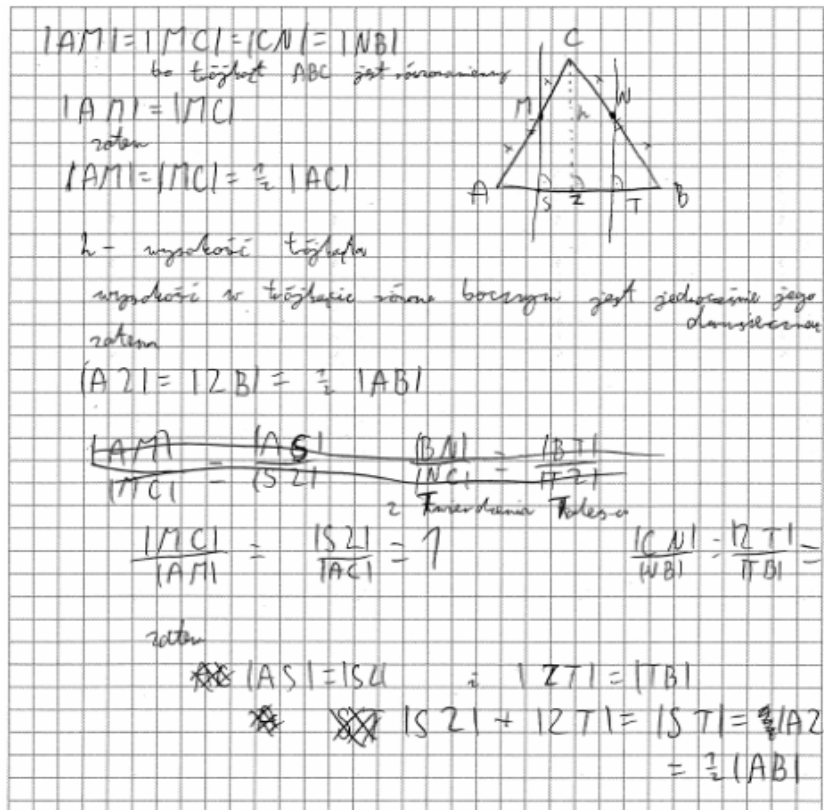 |AM| = |MC| = |CN| = |NB|
bo trójkąt ABC jest równoramienny
|AM| = |MC|
zatem
|AM| = |MC| = ½ |AC|
C
M
N
h
A
S
Z
T
B
h - wysokość trójkąta
wysokość w trójkącie równo bocznym jest jednocześnie jego
dwusieczną
zatem
|AZ| = |ZB| = ½ |AB|
|AM|/|MC| = |AS|/|SZ| |BN|/|NC| = |BT|/|TZ|
z Twierdzenia Talesa
|MC|/|AM| = |SZ|/|AC| = 1 |CN|/|NB| = |ZT|/|TB| =
zatem
|AS| = |SZ| i |ZT| = |TB|
|SZ| + |ZT| = |ST| = |AZ
= ½ |AB|